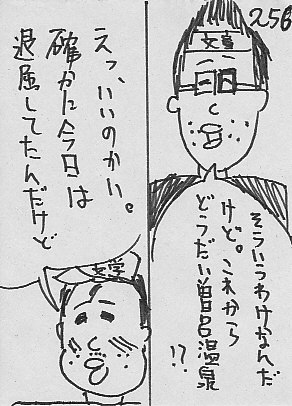 256
そういうわけなんだ
けど。これから
どうだい曽呂温泉
!?
えっ、いいのかい。
確かに今日は
退屈してたんだけど
文学